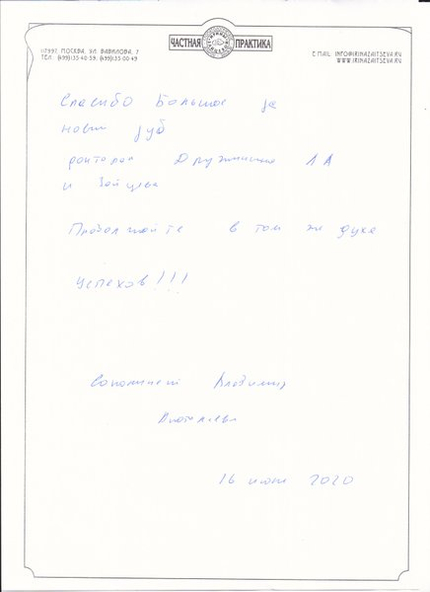 117997, МОСКВА, УЛ. ВАВИЛОВА, 7
ТЕЛ.: (499)135-40-59, (499)135-00-49
ЧАСТНАЯ ПРАКТИКА
E-MAIL: INFO@IRINAZAITSEVA.RU
WWW.IRINAZAITSEVA.RU
Спасибо Большое за
новый зуб
докторам Дружининой ЛА
и Зайцевой
Продолжайте в том же духе
Успехов!!!
Владимир
16 июня 2020